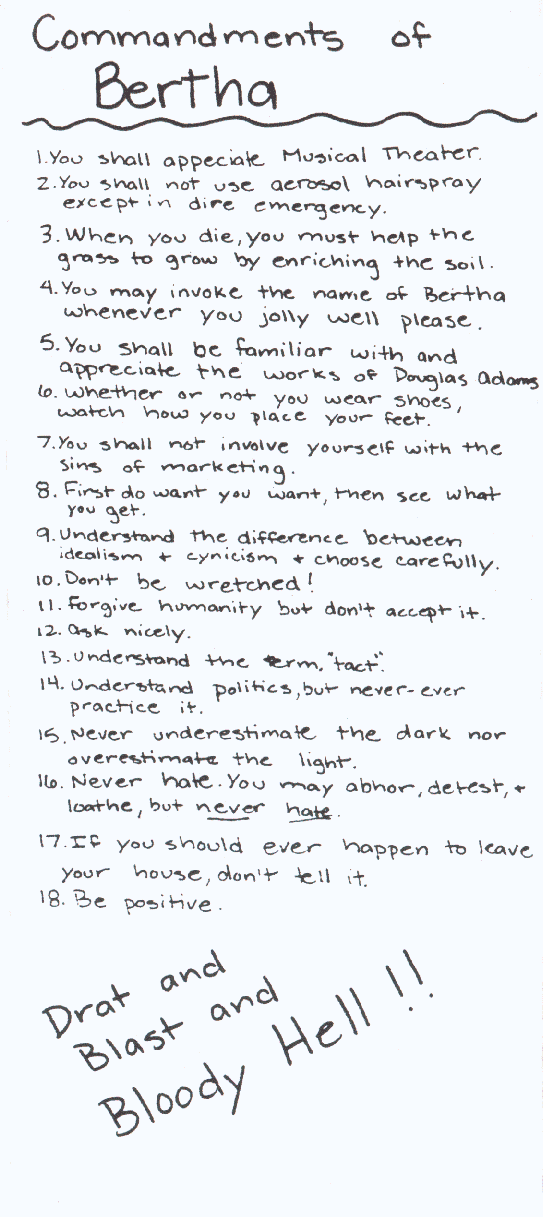 Commandments of
Bertha
1. You shall appeciate Musical Theater.
2. You shall not use aerosol hairspray
except in dire emergency.
3. When you die, you must help the
grass to grow by enriching the soil.
4. You may invoke the name of Bertha
whenever you jolly well please.
5. You shall be familiar with and
appreciate the works of Douglas Adams
6. Whether or not you wear shoes,
watch how you place your feet.
7. You shall not involve yourself with the
sins of marketing.
8. First do want you want, then see what
you get.
9. Understand the difference between
idealism + cynicism + choose carefully.
10. Don't be wretched!
11. Forgive humanity but don't accept it.
12. Ask nicely.
13. Understand the term, "tact".
14. Understand politics, but never-ever
practice it.
15. Never underestimate the dark nor
overestimate the light.
16. Never hate. You may abhor, detest, +
loathe, but never hate.
17. If you should ever happen to leave
your house, don't tell it.
18. Be positive.
Drat and
Blast and
Bloody Hell!!